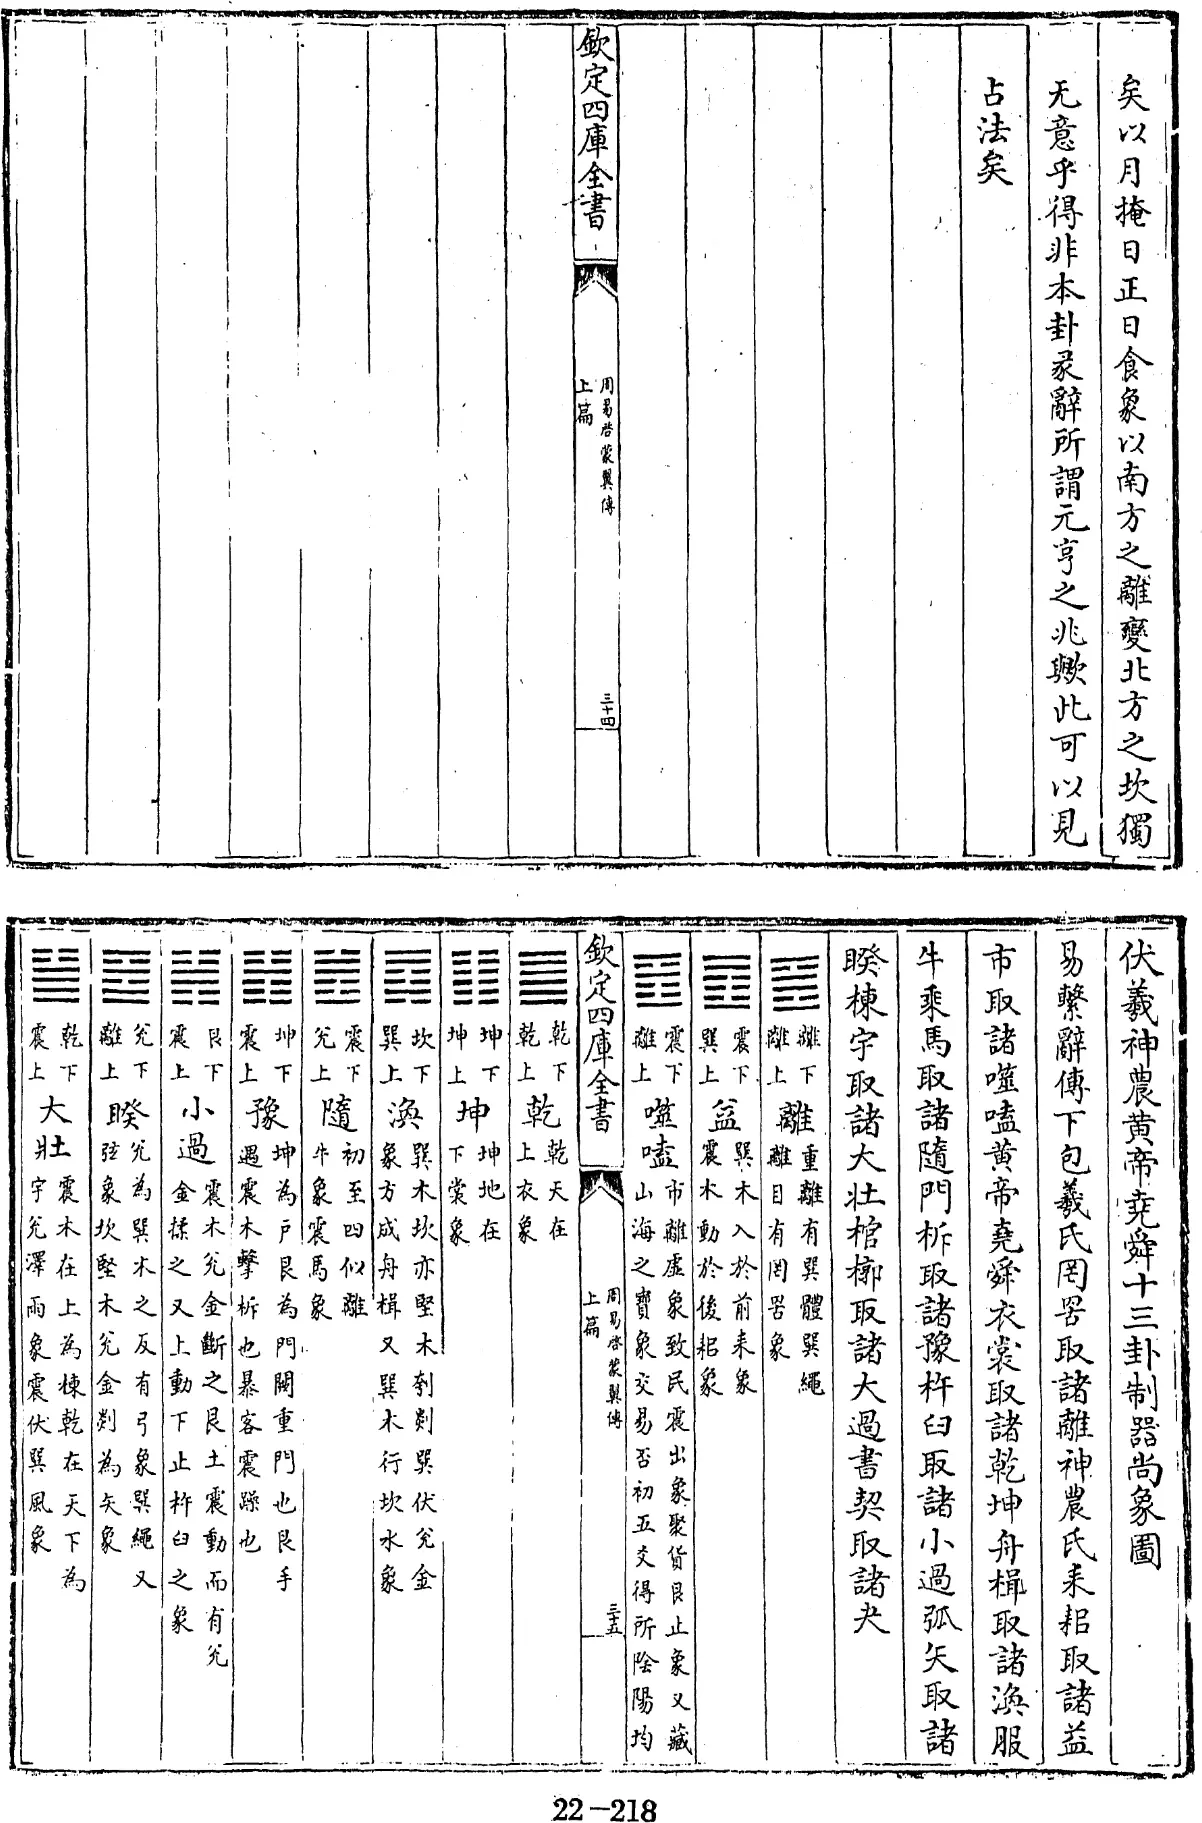 矣以月掩日正日食象以南方之離變北方之坎獨
无意乎得非本卦彖辭所謂元亨之兆歟此可以見
占法矣
欽定四庫全書
周易啓蒙翼傳
上篇
三十四
伏羲神農黃帝堯舜十三卦制器尚象圖
易繫辭傳下包羲氏罔罟取諸離神農氏耒耜取諸益
市取諸噬嗑黃帝堯舜衣裳取諸乾坤舟楫取諸渙服
牛乘馬取諸隨門柝取諸豫杵臼取諸小過弧矢取諸
睽棟宇取諸大壯棺槨取諸大過書契取諸夬
離下
離上
離
重離有巽體巽繩
離目有罔罟象
震下
巽上
益
巽木入於前耒象
震木動於後耜象
震下
離上
噬嗑
市離虛象致民震出象聚貨艮止象又藏
山海之寶象交易否初五交得所陰陽均
欽定四庫全書
周易啓蒙翼傳
上篇
三十五
乾下
乾上
乾
乾天在
上衣象
坤下
坤上
坤
坤地在
下裳象
坎下
巽上
渙
巽木坎亦堅木刳剡巽伏兌金
象方成舟楫又巽木行坎水象
震下
兌上
隨
初至四似離
牛象震馬象
坤下
震上
豫
坤為戶艮為門闢重門也艮手
遇震木擊柝也暴客震躁也
艮下
震上
小過
震木兌金斷之艮土震動而有兌
金揉之又上動下止杵臼之象
兌下
離上
睽
兌為巽木之反有弓象巽繩又
弦象坎堅木兌金剡為矢象
乾下
震上
大壯
震木在上為棟乾在天下為
宇兌澤雨象震伏巽風象
22-218